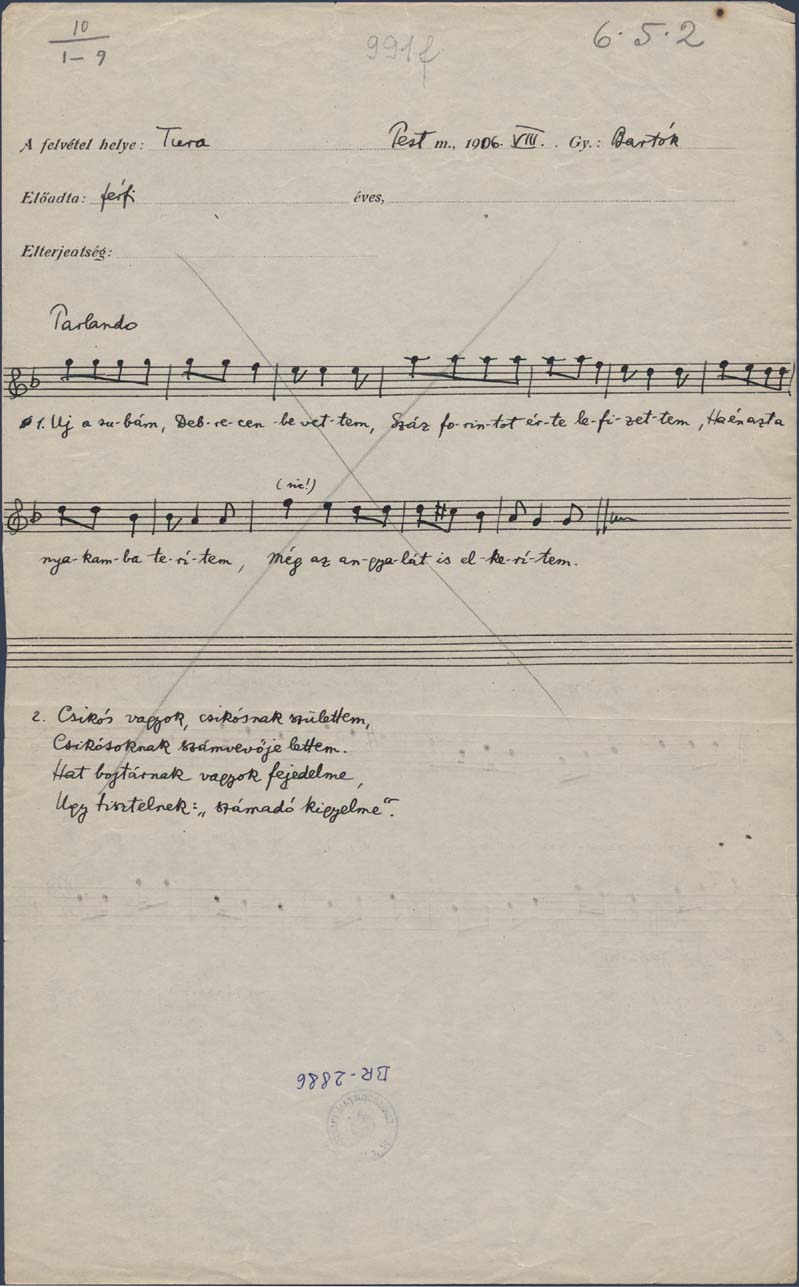 10
1-9
991f
6·5·2
A felvétel helye: Tura Pest m., 1906. VIII. Gy.: Bartók
Előadta: férfi éves,
Elterjedtség:
Parlando
1. Uj a su-bám, Deb-re-cen-be vet-tem, Száz fo-rin-tot ér-te le-fi-zet-tem, Ha én azt a
(sic!)
nya-kam-ba te-rí-tem, Még az an-gya-lát is el-ke-rí-tem.
2. Csikós vagyok, csikósnak születtem,
Csikósoknak számvevője lettem.
Hat bojtárnak vagyok fejedelme,
Ugy tisztelnek: „számadó kigyelme".
BR-2886